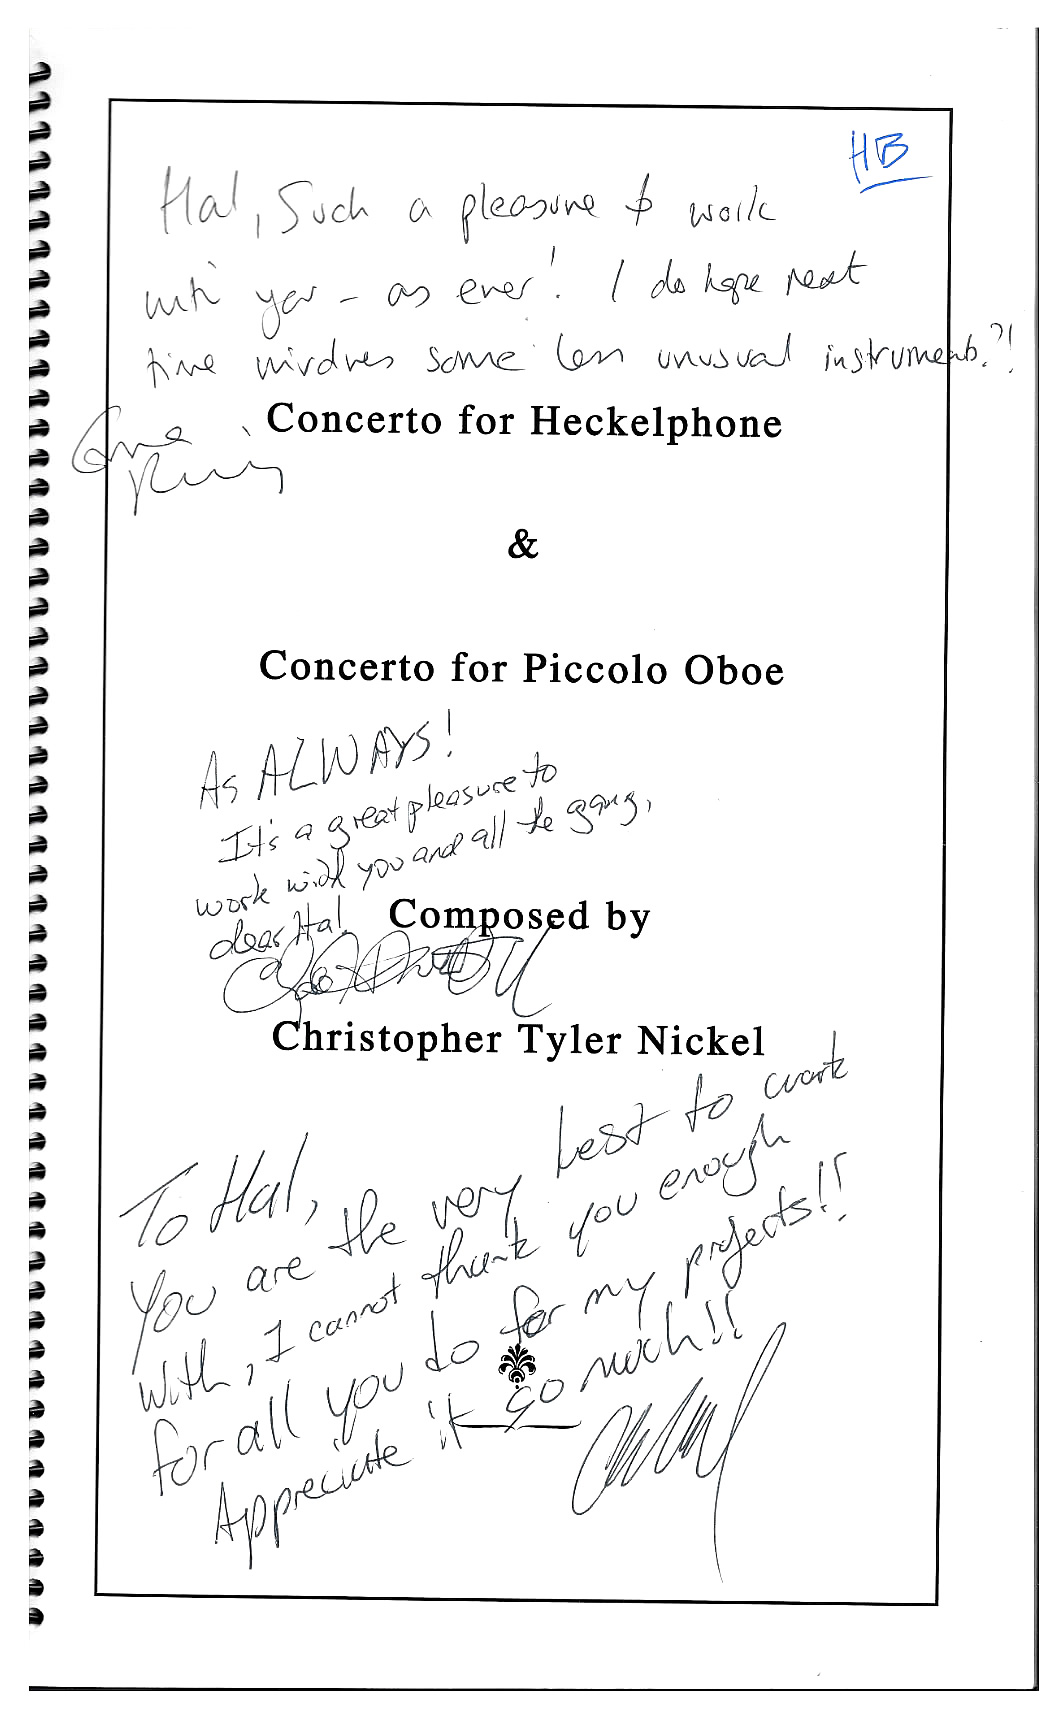 HB
Hal, Such a pleasure to work
with you - as ever! I do hope next
time involves some less unusual instruments?!
Concerto for Heckelphone
&
Concerto for Piccolo Oboe
As ALWAYS!
It's a great pleasure to
work with you and all the gang,
dear Hal
Composed by
Christopher Tyler Nickel
To Hal,
You are the very best to work
with, I cannot thank you enough
for all you do for my projects!!
Appreciate it so much!!